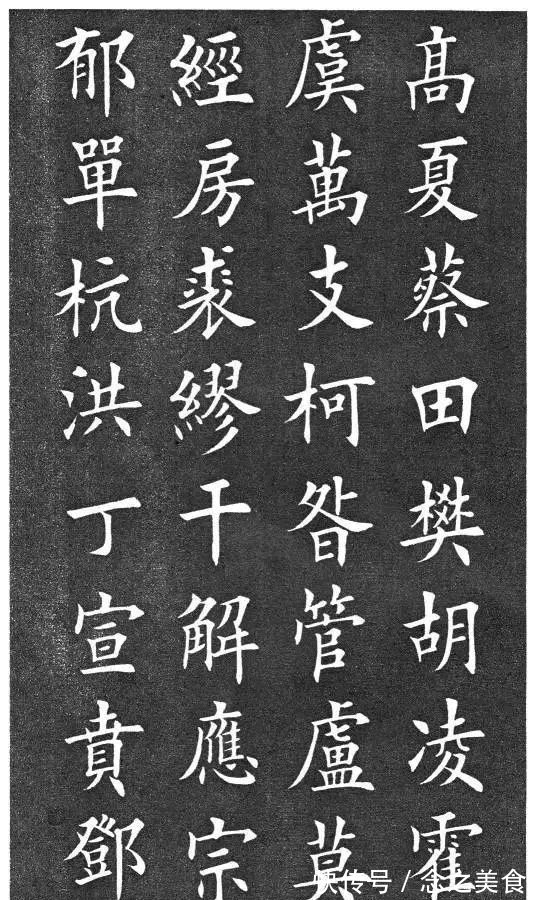 高夏蔡田樊胡凌霍
虞萬支柯昝管盧莫
經房裘繆干解應宗
郁單杭洪丁宣賁鄧
快传号 / 念之美食